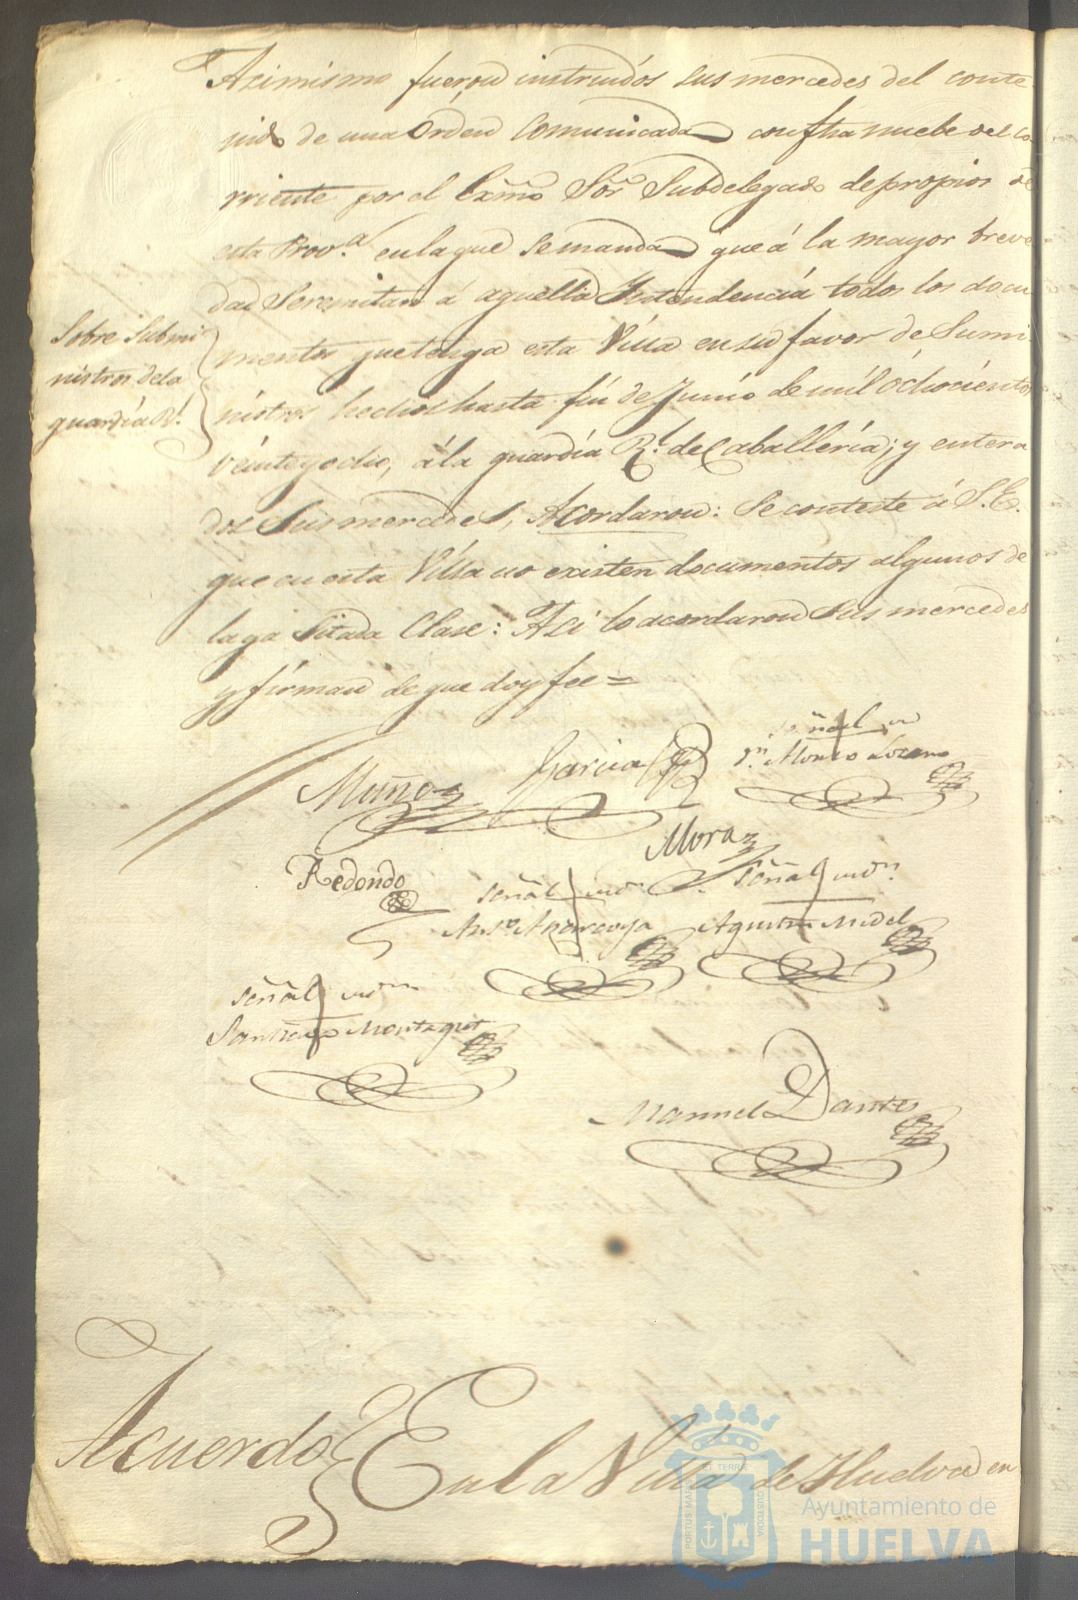 Asimismo fueron instruidos sus mercedes del conte
nido de una Orden Comunicada con fha nuebe del co
rriente por el Exmo Sor Subdelegado de propios de
esta Prov.a en la que se manda que á la mayor breve
dad Se remitan á aquella Yntendencia todos los docu
mentos que tenga esta Villa en su favor de Sumi
nistros hechos hasta fin de Junio de mil ochocientos
veinte y ocho, á la guardia R.l de Caballería; y entera
dos Sus mercedes, Acordaron: Se conteste á S.E.
que en esta Villa no existen documentos algunos de
la ya Sitada Clase: Asi lo acordaron Sus mercedes
y firman de que doy fee =
Sobre Submi
nistros de la
guardia R.l
Muñoz
Garcia
Señal
D.n Alonso Lozano
Mora
Redondo
Señal
Ant.o
Señal
Agustin Midel
Señal
Santiago
Manuel Dantes
Acuerdo
En la Villa de Huelva en
PORTUS MARIS ET TERRE CUSTODIA
Ayuntamiento de
HUELVA